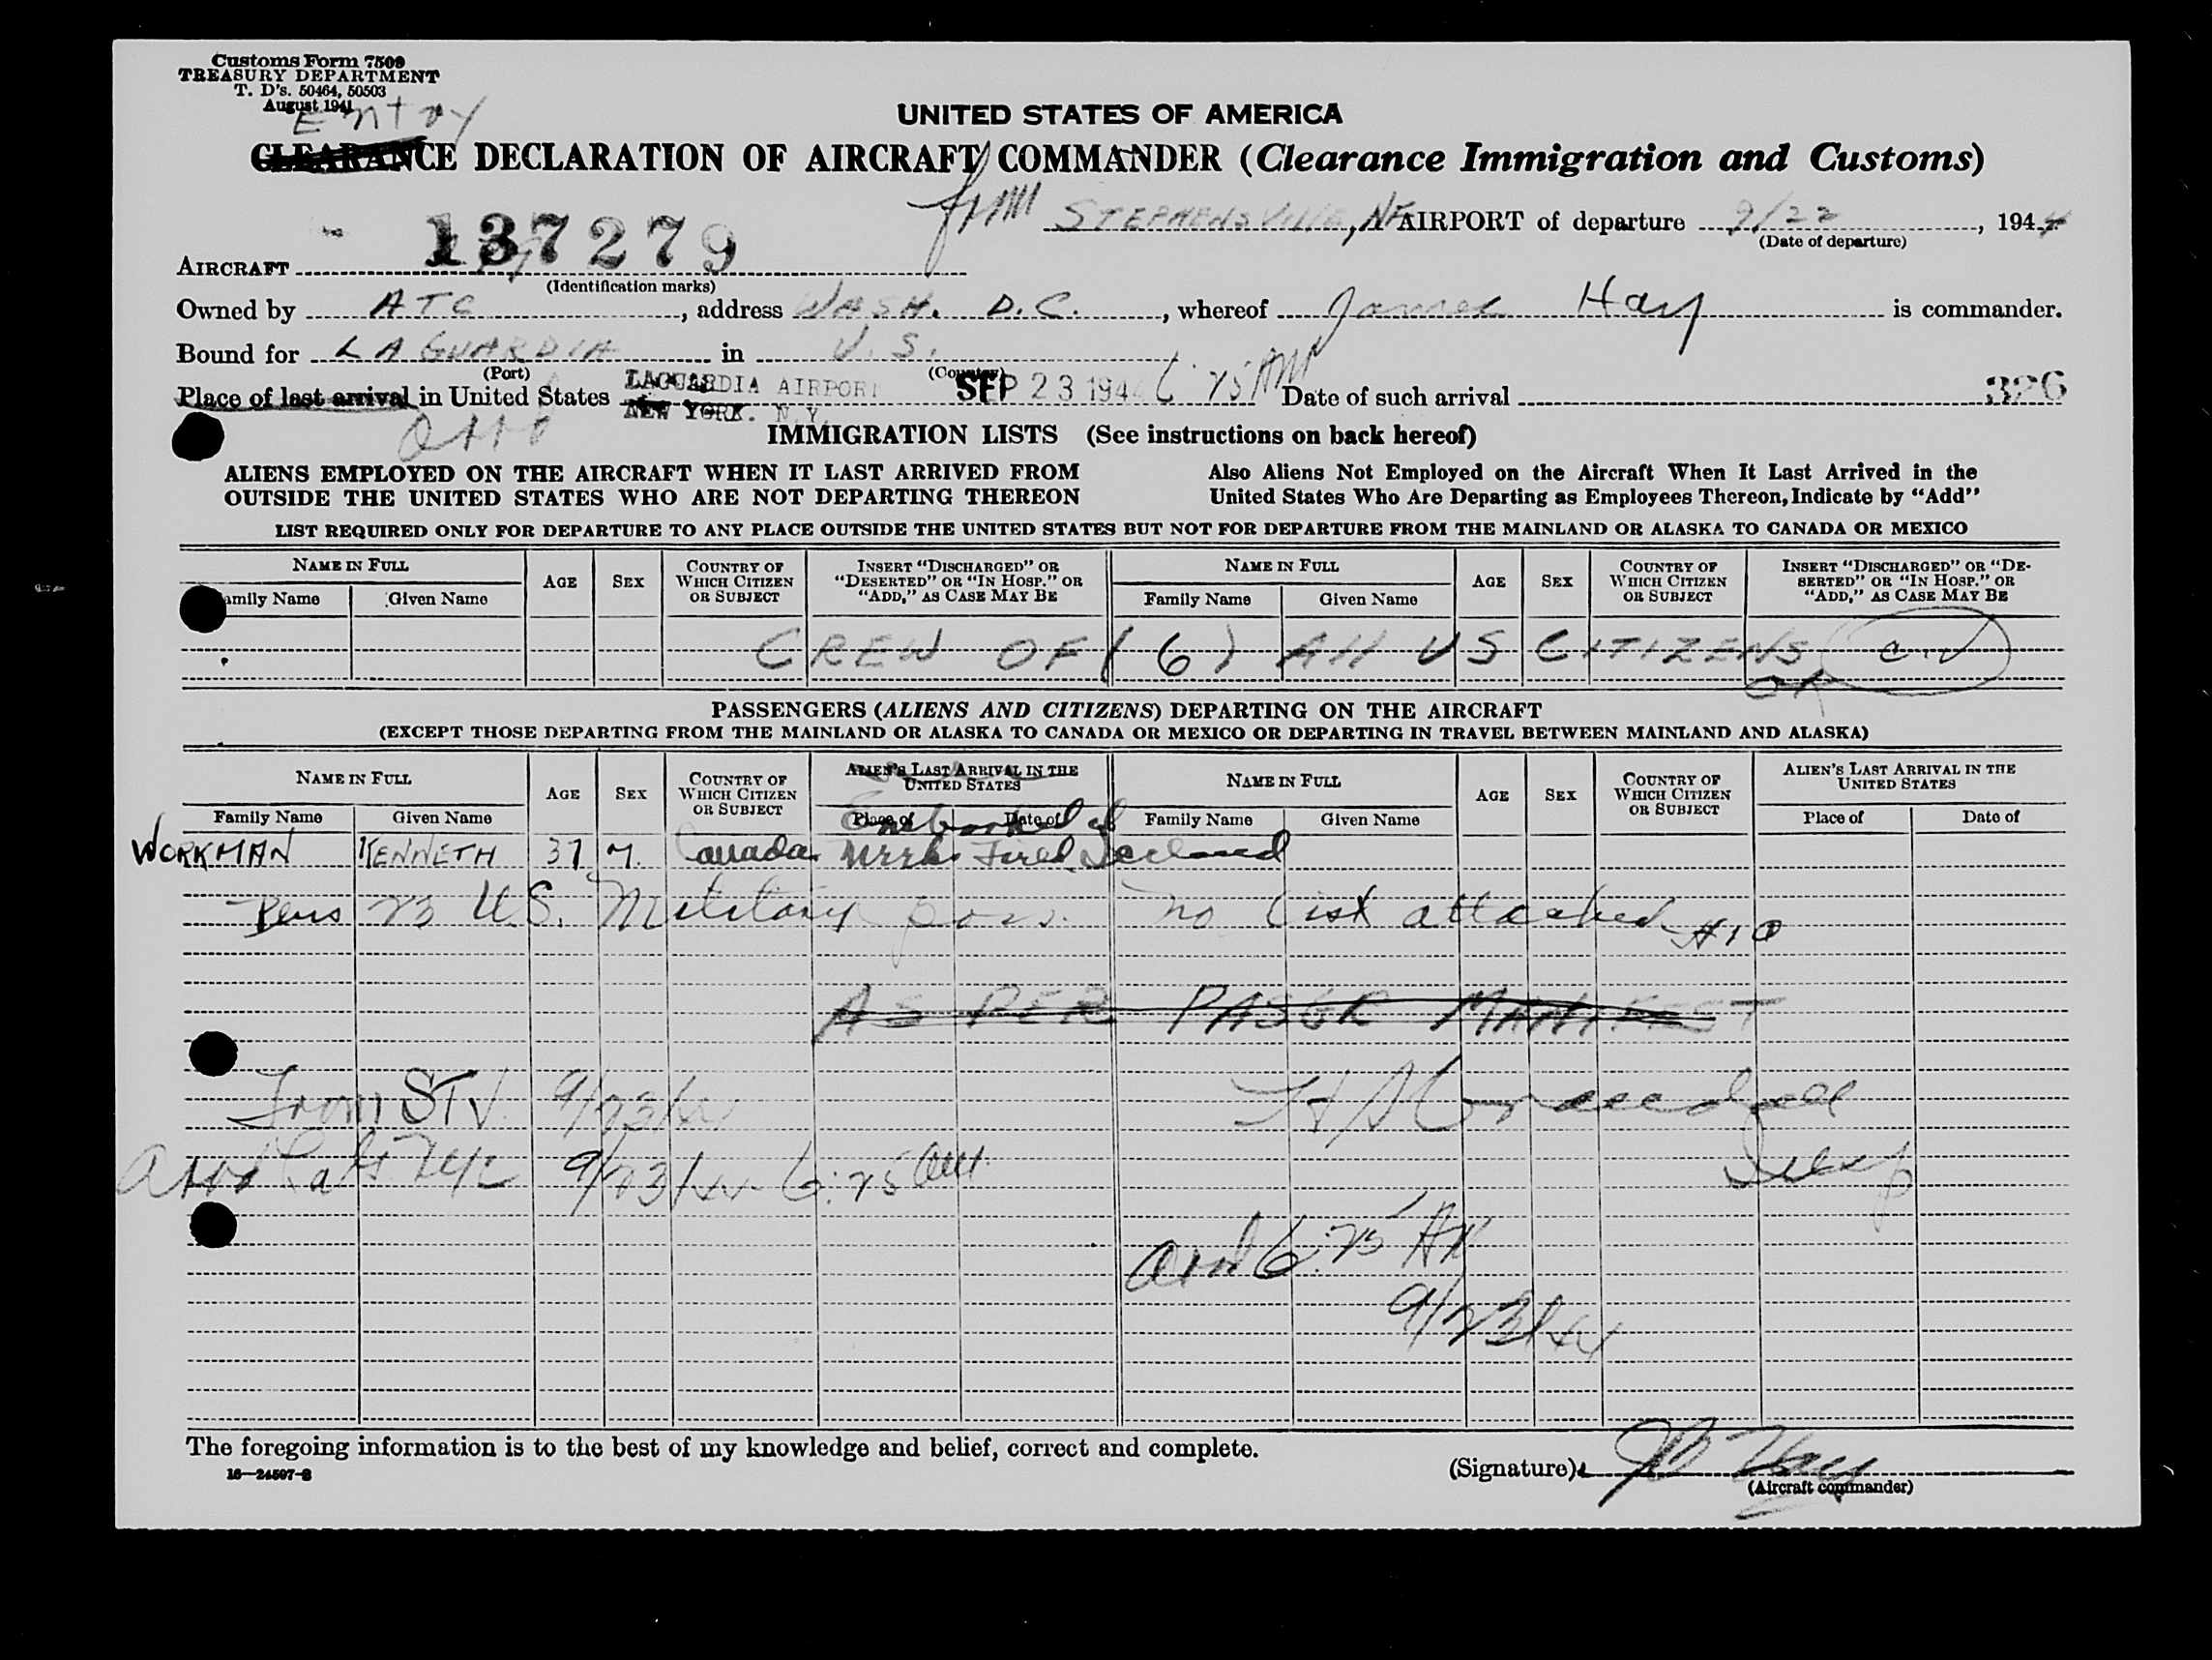 Customs Form 7509
TREASURY DEPARTMENT
T. D's. 50464, 50503
August 1941
Entry
UNITED STATES OF AMERICA
CLEARANCE DECLARATION OF AIRCRAFT COMMANDER (Clearance Immigration and Customs)
from STEPHENSVILLE, NF AIRPORT of departure 9/22, 1944
(Date of departure)
AIRCRAFT 137279
(Identification marks)
Owned by ATC, address WASH. D.C., whereof James Hay is commander.
Bound for LA GUARDIA in U.S.
(Port) (Country)
Place of last arrival in United States LAGUARDIA AIRPORT SEP 23 1944 6:25 AM Date of such arrival 326
NEW YORK. N.Y.
IMMIGRATION LISTS (See instructions on back hereof)
ALIENS EMPLOYED ON THE AIRCRAFT WHEN IT LAST ARRIVED FROM OUTSIDE THE UNITED STATES WHO ARE NOT DEPARTING THEREON
Also Aliens Not Employed on the Aircraft When It Last Arrived in the United States Who Are Departing as Employees Thereon, Indicate by "Add"
LIST REQUIRED ONLY FOR DEPARTURE TO ANY PLACE OUTSIDE THE UNITED STATES BUT NOT FOR DEPARTURE FROM THE MAINLAND OR ALASKA TO CANADA OR MEXICO
NAME IN FULL AGE SEX COUNTRY OF WHICH CITIZEN OR SUBJECT INSERT "DISCHARGED" OR "DESERTED" OR "IN HOSP." OR "ADD," AS CASE MAY BE NAME IN FULL AGE SEX COUNTRY OF WHICH CITIZEN OR SUBJECT INSERT "DISCHARGED" OR "DESERTED" OR "IN HOSP." OR "ADD," AS CASE MAY BE
amily Name Given Name Family Name Given Name
CREW OF (6) All US CITIZENS
OK
PASSENGERS (ALIENS AND CITIZENS) DEPARTING ON THE AIRCRAFT
(EXCEPT THOSE DEPARTING FROM THE MAINLAND OR ALASKA TO CANADA OR MEXICO OR DEPARTING IN TRAVEL BETWEEN MAINLAND AND ALASKA)
NAME IN FULL AGE SEX COUNTRY OF WHICH CITIZEN OR SUBJECT ALIEN'S LAST ARRIVAL IN THE UNITED STATES NAME IN FULL AGE SEX COUNTRY OF WHICH CITIZEN OR SUBJECT ALIEN'S LAST ARRIVAL IN THE UNITED STATES
Family Name Given Name Place of Date of Family Name Given Name Place of Date of
Embarked at
WORKMAN KENNETH 37 M. Canada Meeks Field Iceland
Plus 23 U.S. Military pass. no list attached
AS PER PASGR MANIFEST
From STV. 9/23/44
Insp
arrd LaG. 9/23/44 6:25 AM
arrd 6:25 AM
9/23/44
The foregoing information is to the best of my knowledge and belief, correct and complete.
16—24507-2
(Signature) Hay
(Aircraft commander)